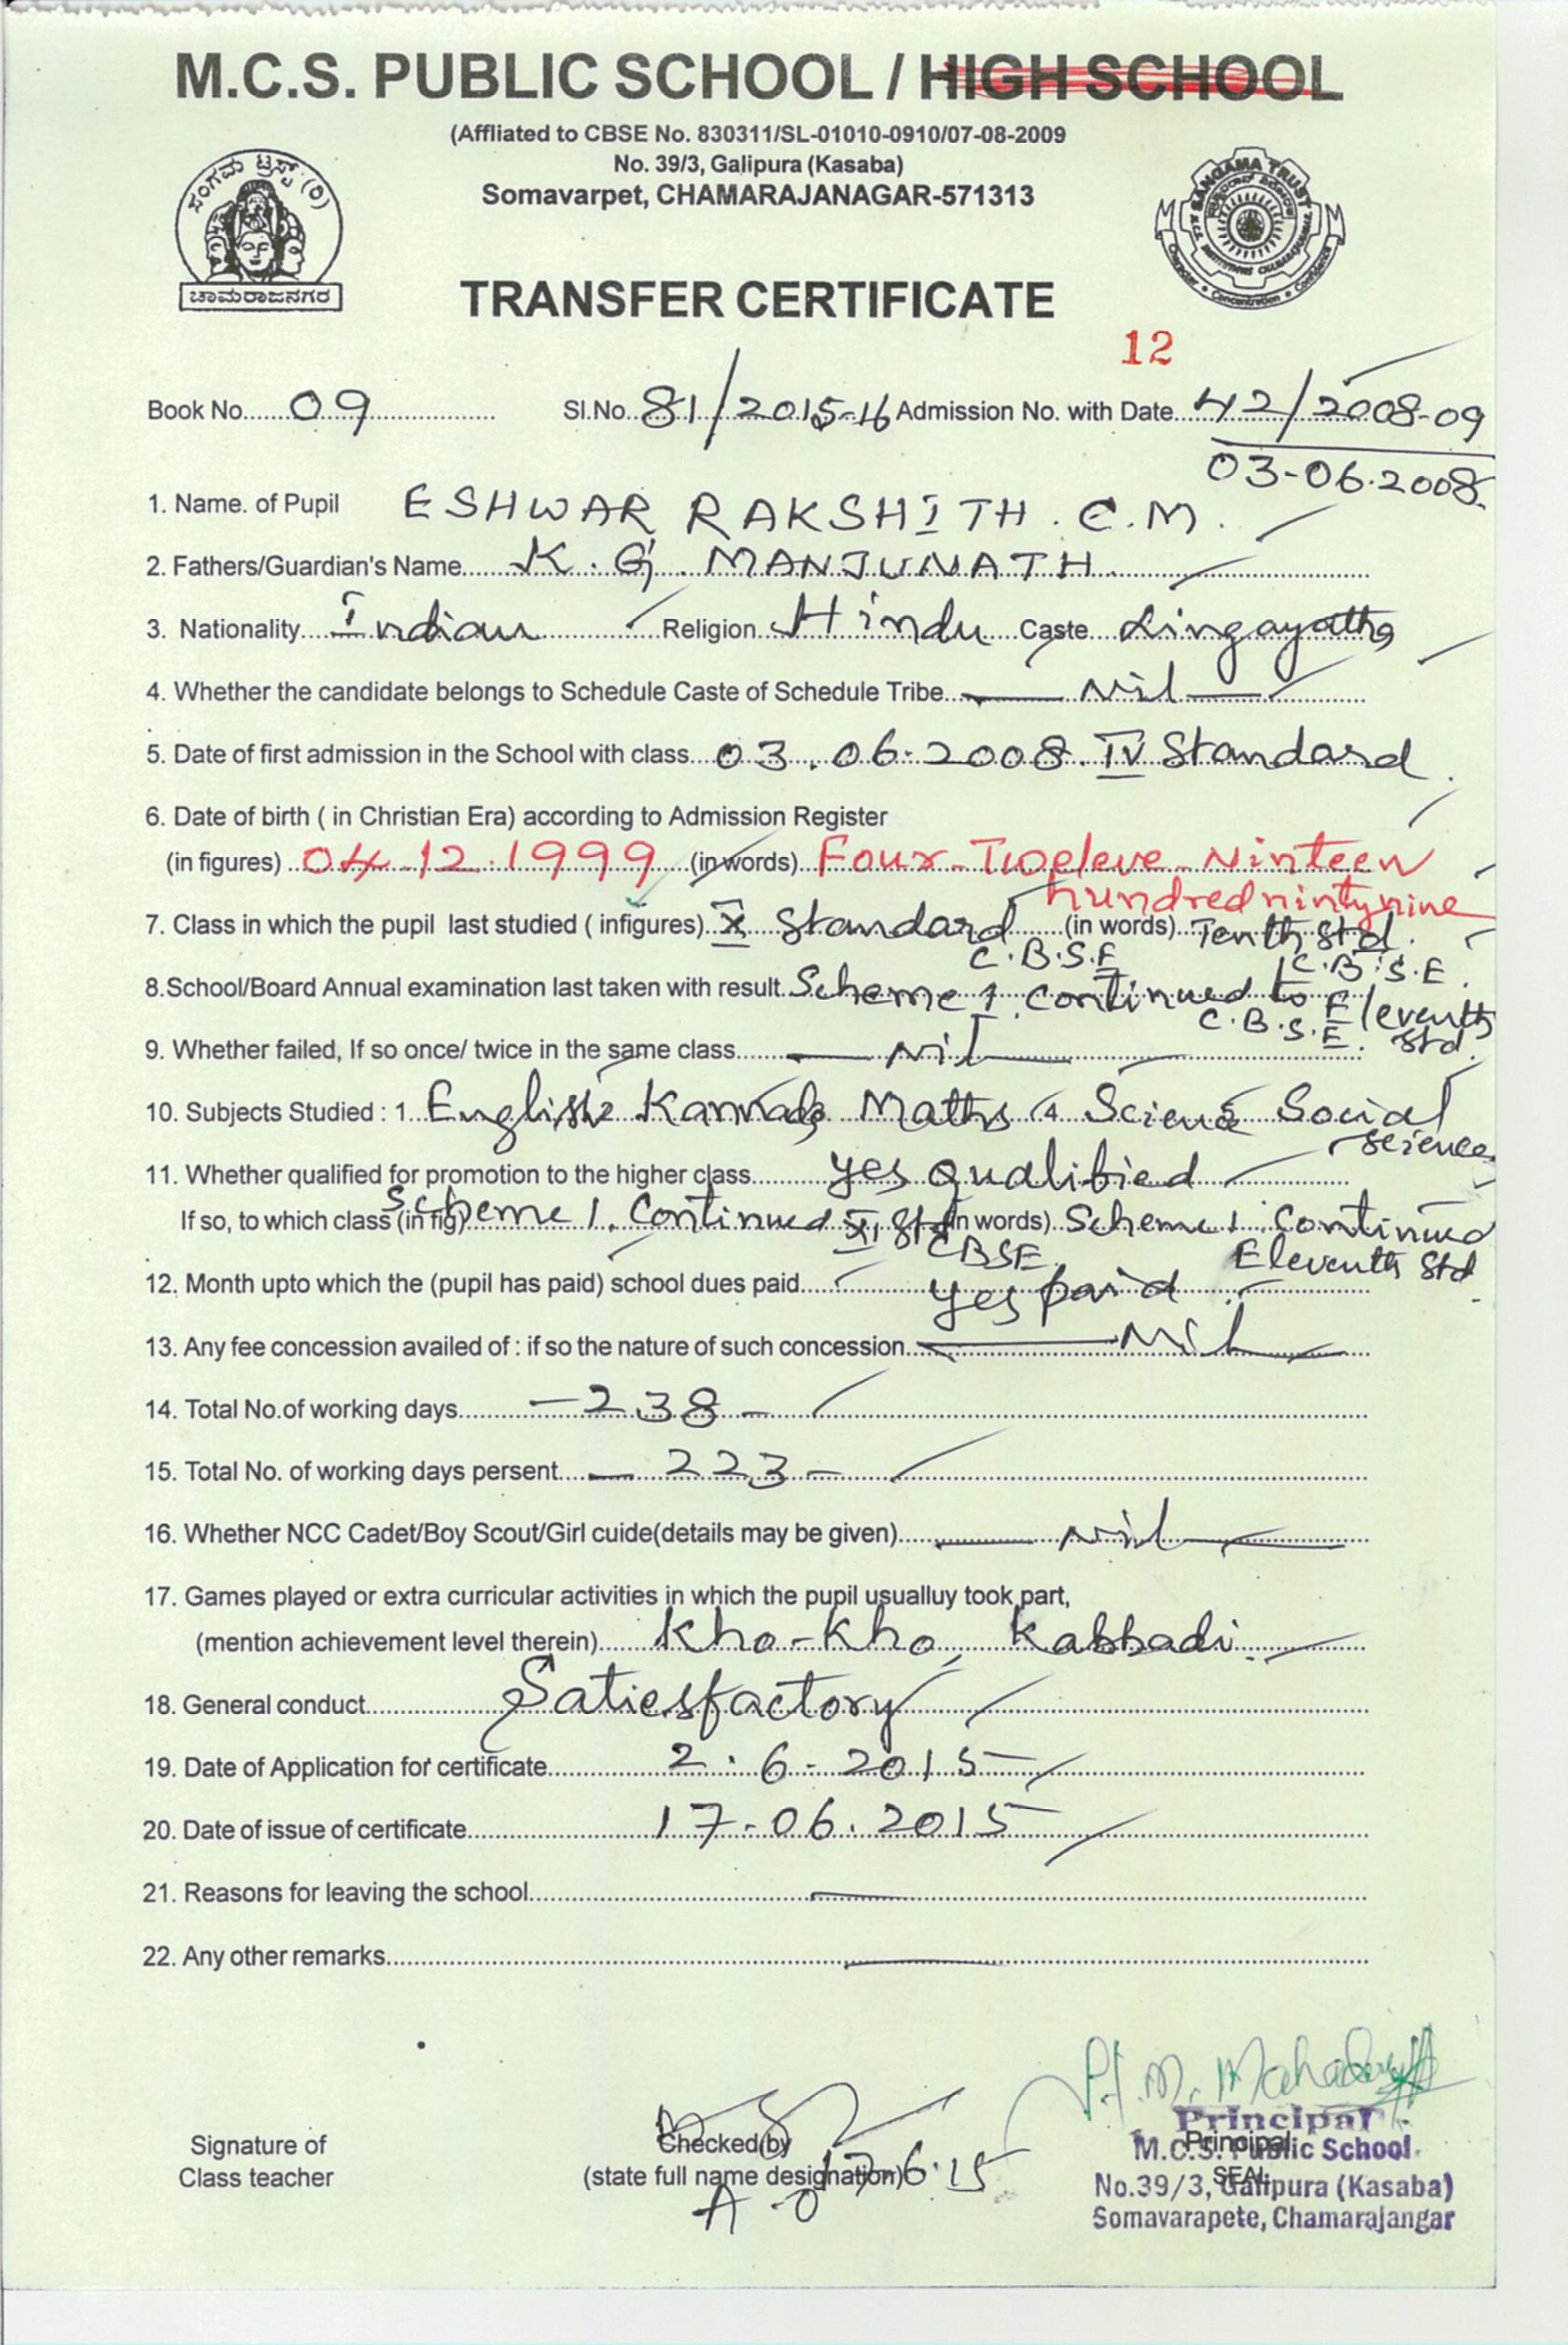 M.C.S. PUBLIC SCHOOL / HIGH SCHOOL
(Affliated to CBSE No. 830311/SL-01010-0910/07-08-2009
No. 39/3, Galipura (Kasaba)
Somavarpet, CHAMARAJANAGAR-571313
ಸಂಗಮ ಟ್ರಸ್ಟ್ (ರಿ)
ಚಾಮರಾಜನಗರ
SANGAMA TRUST
Character • Concentration • Confidence
TRANSFER CERTIFICATE
12
Book No. 09 Sl.No. 81/2015-16 Admission No. with Date 42/2008-09
03-06.2008
1. Name. of Pupil ESHWAR RAKSHITH. C.M.
2. Fathers/Guardian's Name K. G. MANJUNATH
3. Nationality Indian Religion Hindu Caste Lingayatha
4. Whether the candidate belongs to Schedule Caste of Schedule Tribe Nil
5. Date of first admission in the School with class 03.06.2008. IV Standard
6. Date of birth ( in Christian Era) according to Admission Register
(in figures) 04-12-1999 (in words) Four-Twoeleve-Ninteen
hundred nintynine
7. Class in which the pupil last studied ( infigures) X Standard (in words) Tenth Std.
C.B.S.E C.B.S.E.
8.School/Board Annual examination last taken with result Scheme 1. Continued to Eleventh
C.B.S.E. Std.
9. Whether failed, If so once/ twice in the same class Nil
10. Subjects Studied : 1 English 2 Kannada 3 Maths 4 Science 5 Social
Science
11. Whether qualified for promotion to the higher class yes qualified
If so, to which class (in fig) Scheme 1. Continued XI Std (in words) Scheme 1 Continued
CBSE Eleventh Std
12. Month upto which the (pupil has paid) school dues paid yes paid
13. Any fee concession availed of : if so the nature of such concession Nil
14. Total No.of working days -238-
15. Total No. of working days persent - 223-
16. Whether NCC Cadet/Boy Scout/Girl cuide(details may be given) Nil
17. Games played or extra curricular activities in which the pupil usualluy took part,
(mention achievement level therein) Kho-Kho, Kabbadi
18. General conduct Satiesfactory
19. Date of Application for certificate 2.6-2015
20. Date of issue of certificate 17-06.2015
21. Reasons for leaving the school
22. Any other remarks
Signature of
Class teacher
Checked by
(state full name designation)
17-6.15
A.O
Principal
SEAL
Principal
M.C.S. Public School
No.39/3, Galipura (Kasaba)
Somavarapete, Chamarajangar